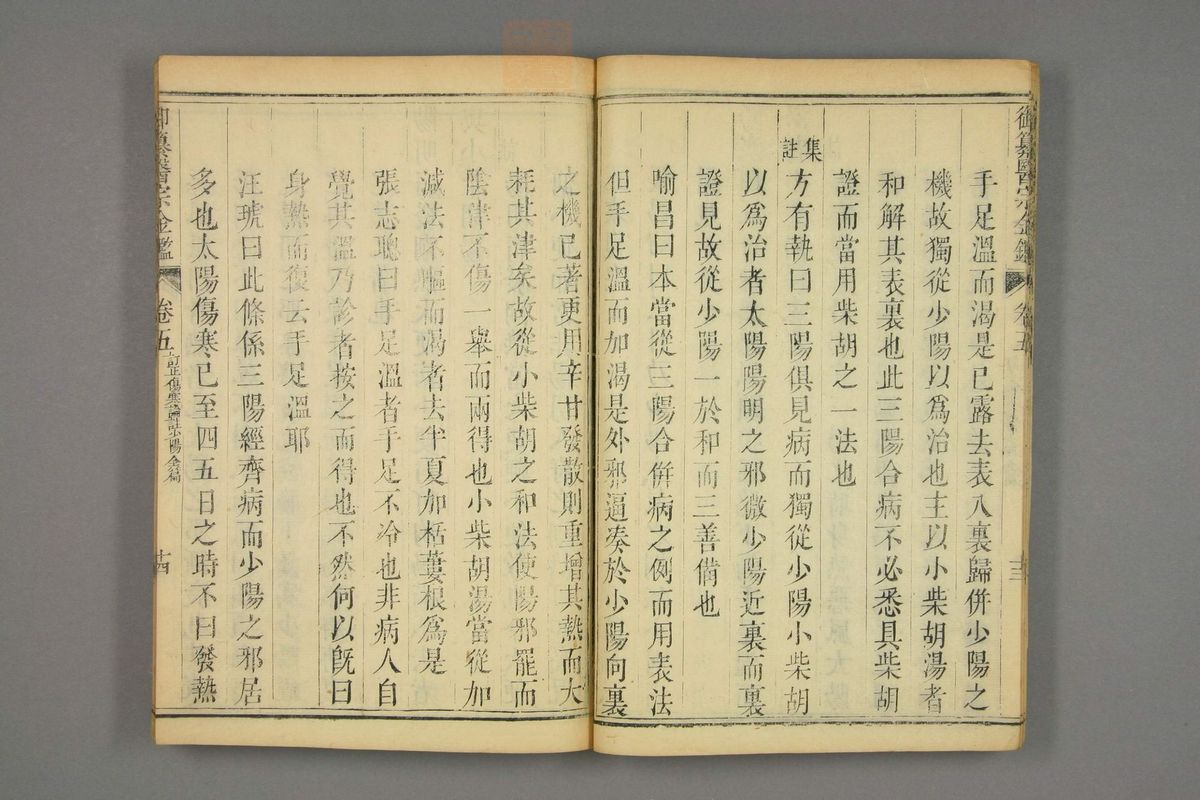 御纂醫宗金鑑
卷五
十三
手足溫而渴是已露去表入裏歸併少陽之
機故獨從少陽以爲治也主以小柴胡湯者
和解其表裏也此三陽合病不必悉具柴胡
證而當用柴胡之一法也
集註
方有執曰三陽俱見病而獨從少陽小柴胡
以爲治者太陽陽明之邪微少陽近裏而裏
證見故從少陽一於和而三善備也
喻昌曰本當從三陽合併病之例而用表法
但手足溫而加渴是外邪逼湊於少陽向裏
之機已著更用辛甘發散則重增其熱而大
耗其津矣故從小柴胡之和法使陽邪罷而
陰津不傷一舉而兩得也小柴胡湯當從加
減法不嘔而渴者去半夏加栝蔞根爲是
張志聰曰手足溫者手足不冷也非病人自
覺其溫乃診者按之而得也不然何以既曰
身熱而復云手足溫耶
汪琥曰此條係三陽經齊病而少陽之邪居
多也太陽傷寒已至四五日之時不曰發熱
御纂醫宗金鑑
卷五
訂正傷寒論註少陽全篇
十四